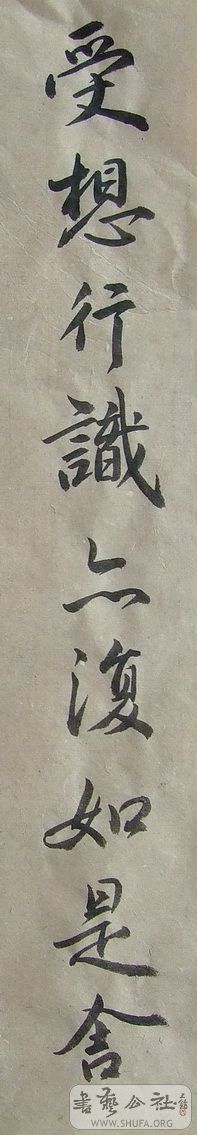 受想行識亦復如是舍
書藝公社
WWW.SHUFA.ORG